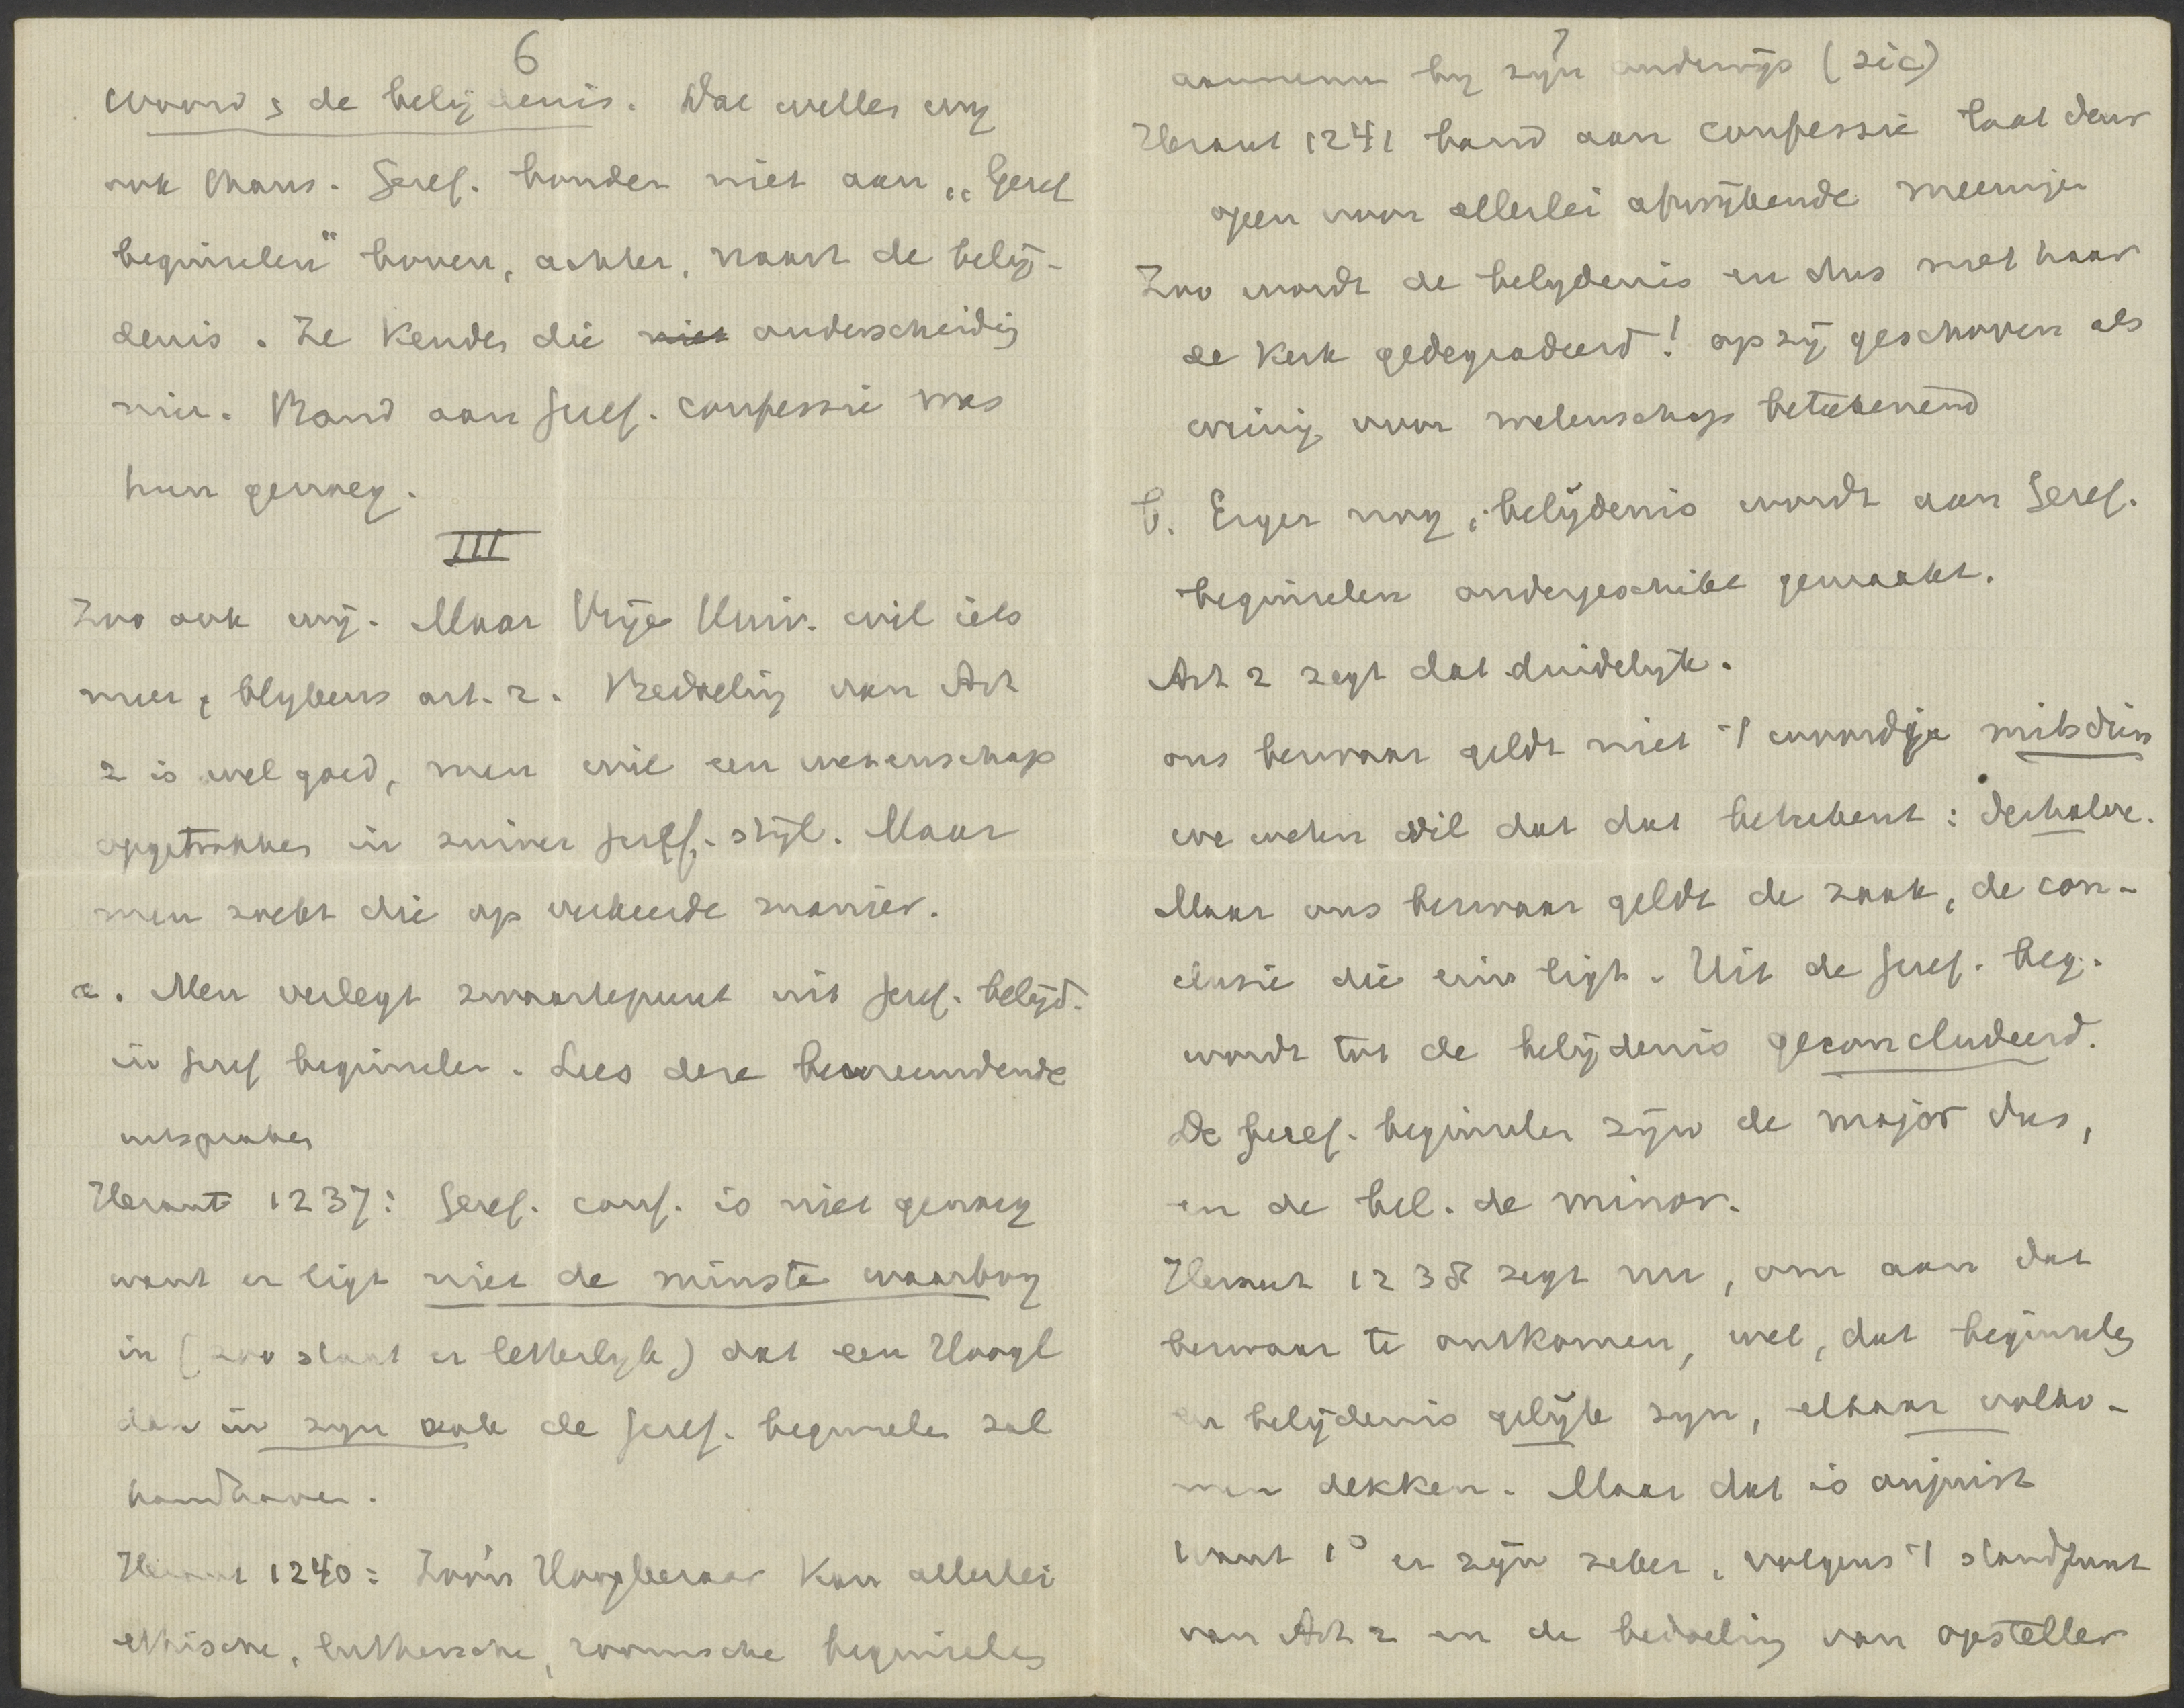 6
woord & de belijdenis. Dat willen wij
ook thans. Geref. bonden niet aan „Geref
beginselen" boven, achter, naast de belij-
denis. Ze kenden die niet onderscheiding
niet. Band aan Geref. confessie was
hun genoeg.
III
Zoo ook wij. Maar Vrije Univ. wil iets
meer, blijkens art. 2. Bedoeling van Art
2 is wel goed, men wil een wetenschap
opgetrokken in zuiver geref. stijl. Maar
men zoekt die op verkeerde manier.
a. Men verlegt zwaartepunt uit Geref. belijd.
in Geref beginselen. Lees deze bevreemdende
uitspraken
Heraut 1237: Geref. conf. is niet genoeg
want er ligt niet de minste waarborg
in (zoo staat er letterlijk) dat een Hoogl
dan in zijn vak de Geref. beginselen zal
handhaven.
Heraut 1240: Zoo'n Hoogleeraar kan allerlei
ethische, luthersche, roomsche beginselen
7
aannemen bij zijn onderwijs (sic)
Heraut 1241 band aan confessie laat deur
open voor allerlei afwijkende meeningen
Zoo wordt de belijdenis en dus met haar
de Kerk gedegradeerd! op zij geschoven als
weinig voor wetenschap beteekenend
b. Erger nog, belijdenis wordt aan Geref.
beginselen ondergeschikt gemaakt.
Art 2 zegt dat duidelijk.
ons bezwaar geldt niet 't woordje mitsdien
we weten wel dat dat beteekent: derhalve.
Maar ons bezwaar geldt de zaak, de con-
clusie die erin ligt. Uit de Geref. beg.
wordt tot de belijdenis geconcludeerd.
De Geref. beginselen zijn de major dus,
en de bel. de minor.
Heraut 1238 zegt nu, om aan dat
bezwaar te ontkomen, wel, dat beginselen
en belijdenis gelijk zijn, elkaar volko-
men dekken. Maar dat is onjuist
Want 1° er zijn zeker, volgens 't standpunt
van Art 2 en de bedoeling van opsteller